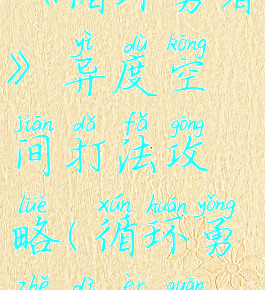 《循环勇者
yì dù kōng
》异度空
jiān dǎ fǎ gōng
间打法攻
lüè xún huán yǒng
略(循环勇
zhě dì èr quān